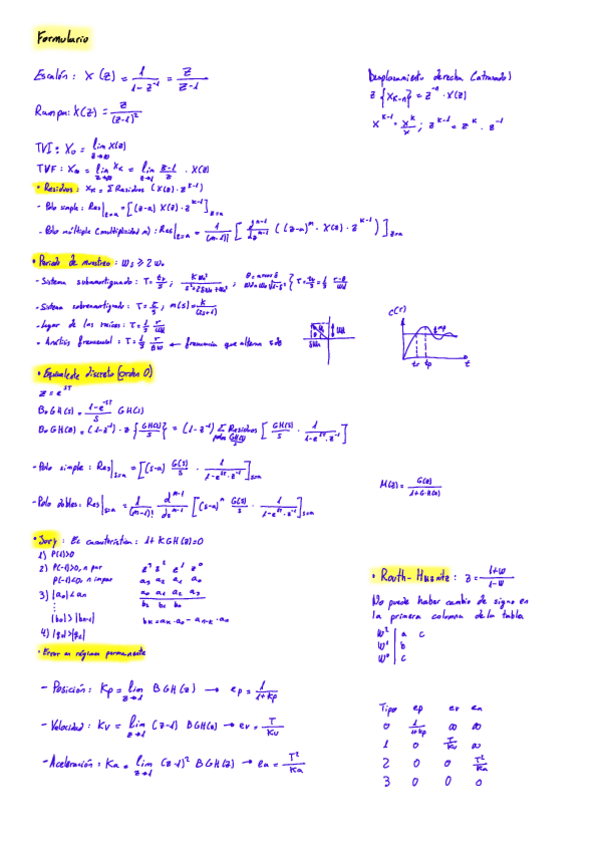 Formulario
Escalón: X(z) = 1/(1-z⁻¹) = z/(z-1)
Rampa: X(z) = z/(z-1)²
Desplazamiento derecha (atrasado)
z{x_{k-n}} = z⁻ⁿ · X(z)
x^{k-1} = x^k/x ; z^{k-1} = z^k · z⁻¹
TVI: X₀ = lim_{z→∞} X(z)
TVF: X∞ = lim X_k = lim_{z→1} (z-1)/z · X(z)
• Residuos: X_k = Σ Residuos (X(z) · z^{k-1})
- Polo simple: Res|_{z=a} = [(z-a) X(z) · z^{k-1}]_{z=a}
- Polo múltiple (multiplicidad m): Res|_{z=a} = 1/(m-1)! [d^{m-1}/dz^{m-1} ((z-a)^m · X(z) · z^{k-1})]_{z=a}
• Periodo de muestreo: ws ≥ 2 wn
- Sistema subamortiguado:
- Sistema sobreamortiguado:
- Lugar de las raíces:
• Análisis frecuencial: ← frecuencia que alterna
c(t)
Mp
tr tp t
• Equivalente discreto (orden 0)
z = e^{sT}
B₀GH(s) = (1-e^{-sT})/s GH(s)
B₀GH(z) = (1-z⁻¹) · z{GH(s)/s} = (1-z⁻¹) Σ Residuos polos GH(s)/s [GH(s)/s · 1/(1-e^{sT}·z⁻¹)]
- Polo simple: Res|_{s=a} = [(s-a) G(s)/s · 1/(1-e^{sT}·z⁻¹)]_{s=a}
- Polo dobles: Res|_{s=a} = 1/(m-1)! d^{m-1}/ds^{m-1} [(s-a)^n G(s)/s · 1/(1-e^{sT}·z⁻¹)]_{s=a}
M(z) = G(z)/(1+G·H(z))
• Jury: Ec característica: 1+KGH(z)=0
1) P(1)>0
2) P(-1)>0, n par
P(-1)<0, n impar
3) |a₀|<an
⋮
|b₀|>|b_{n-1}|
4) |q₀|>|q₂|
z³ z² z¹ z⁰
a₃ a₂ a₁ a₀
a₀ a₁ a₂ a₃
b₂ b₁ b₀
• Routh-Hurwitz: z = (1+w)/(1-w)
No puede haber cambio de signo en
la primera columna de la tabla
w² | a c
w¹ | b
w⁰ | c
• Error en régimen permanente
- Posición: Kp = lim_{z→1} BGH(z) → ep = 1/(1+Kp)
- Velocidad: Kv = lim_{z→1} (z-1) BGH(z) → ev = T/Kv
- Aceleración: Ka = lim_{z→1} (z-1)² BGH(z) → ea = T²/Ka
Tipo ep ev ea
0 1/(1+Kp) ∞ ∞
1 0 T/Kv ∞
2 0 0 T²/Ka
3 0 0 0